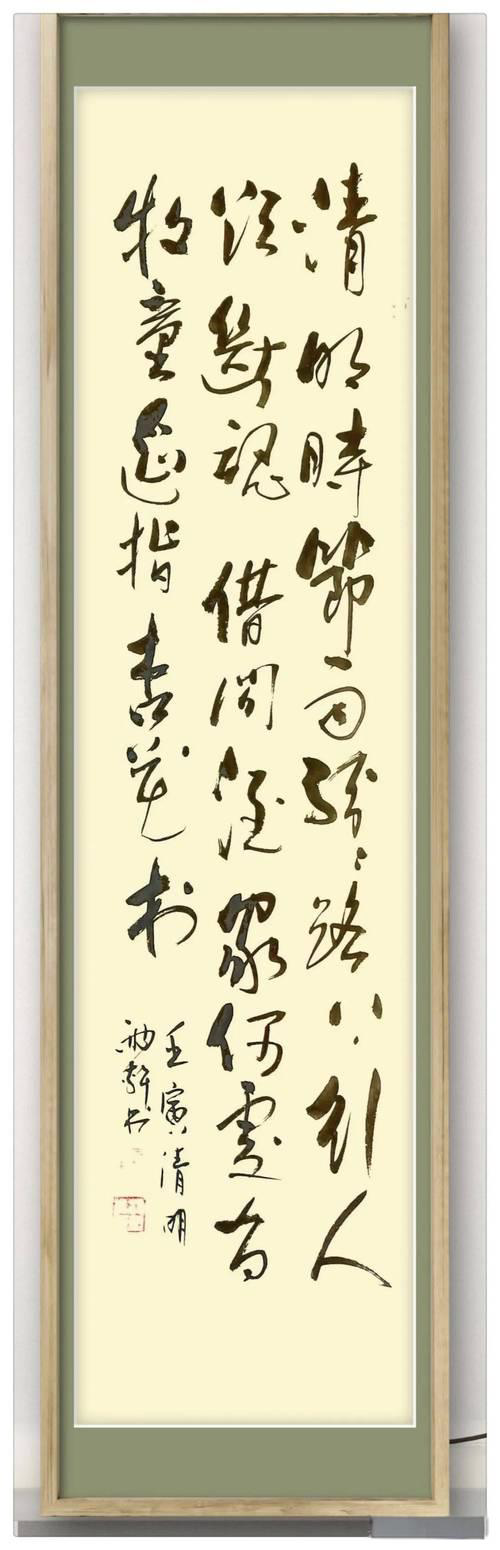 清明時節雨紛々路上行人
欲斷魂借問酒家何處有
牧童遙指杏花村
壬寅清明
书